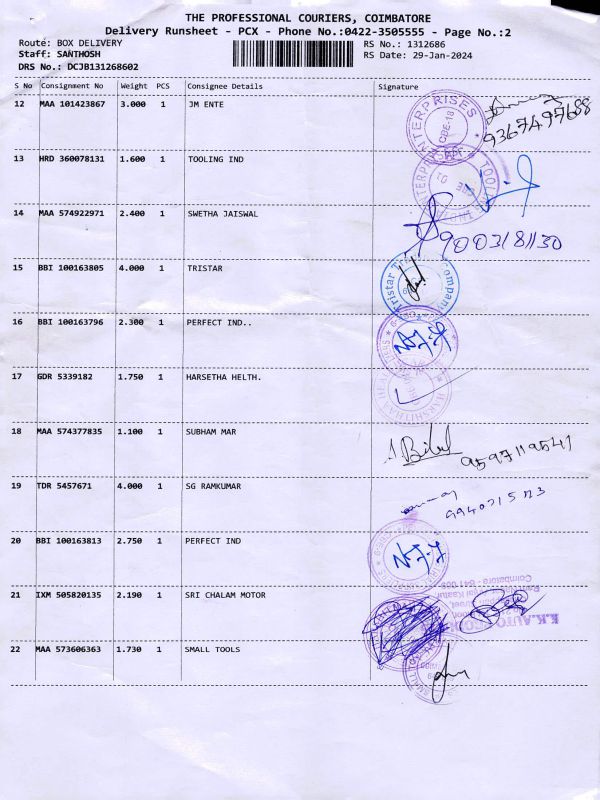 THE PROFESSIONAL COURIERS, COIMBATORE
Delivery Runsheet - PCX - Phone No.:0422-3505555 - Page No.:2
Route: BOX DELIVERY
RS No.: 1312686
Staff: SANTHOSH
RS Date: 29-Jan-2024
DRS No.: DCJB131268602
S No Consignment No Weight PCS Consignee Details Signature
12 MAA 101423867 3.000 1 JM ENTE
ENTERPRISES
CBE-18
9367497688
13 HRD 360078131 1.600 1 TOOLING IND
14 MAA 574922971 2.400 1 SWETHA JAISWAL
9003181130
15 BBI 100163805 4.000 1 TRISTAR
Tristar
Company
16 BBI 100163796 2.300 1 PERFECT IND..
17 GDR 5339182 1.750 1 HARSETHA HELTH.
18 MAA 574377835 1.100 1 SUBHAM MAR
9597119541
19 TDR 5457671 4.000 1 SG RAMKUMAR
20 BBI 100163813 2.750 1 PERFECT IND
21 IXM 505820135 2.190 1 SRI CHALAM MOTOR
Coimbatore - 641
K.K.AUTO
22 MAA 573606363 1.730 1 SMALL TOOLS
SMALL TOOLS